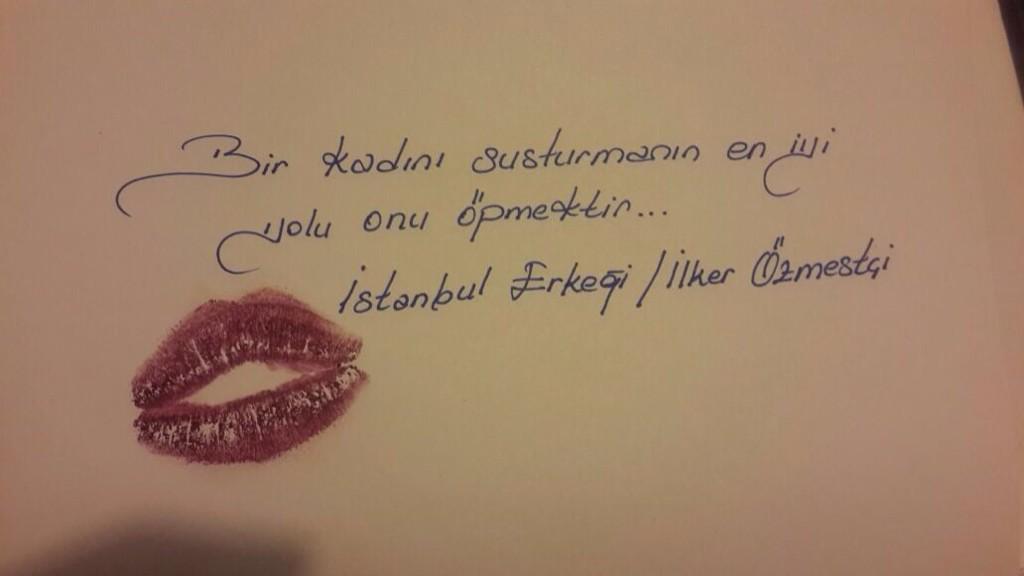 Bir kadını susturmanın en iyi
yolu onu öpmektir...
İstanbul Erkeği / İlker Özmestçi